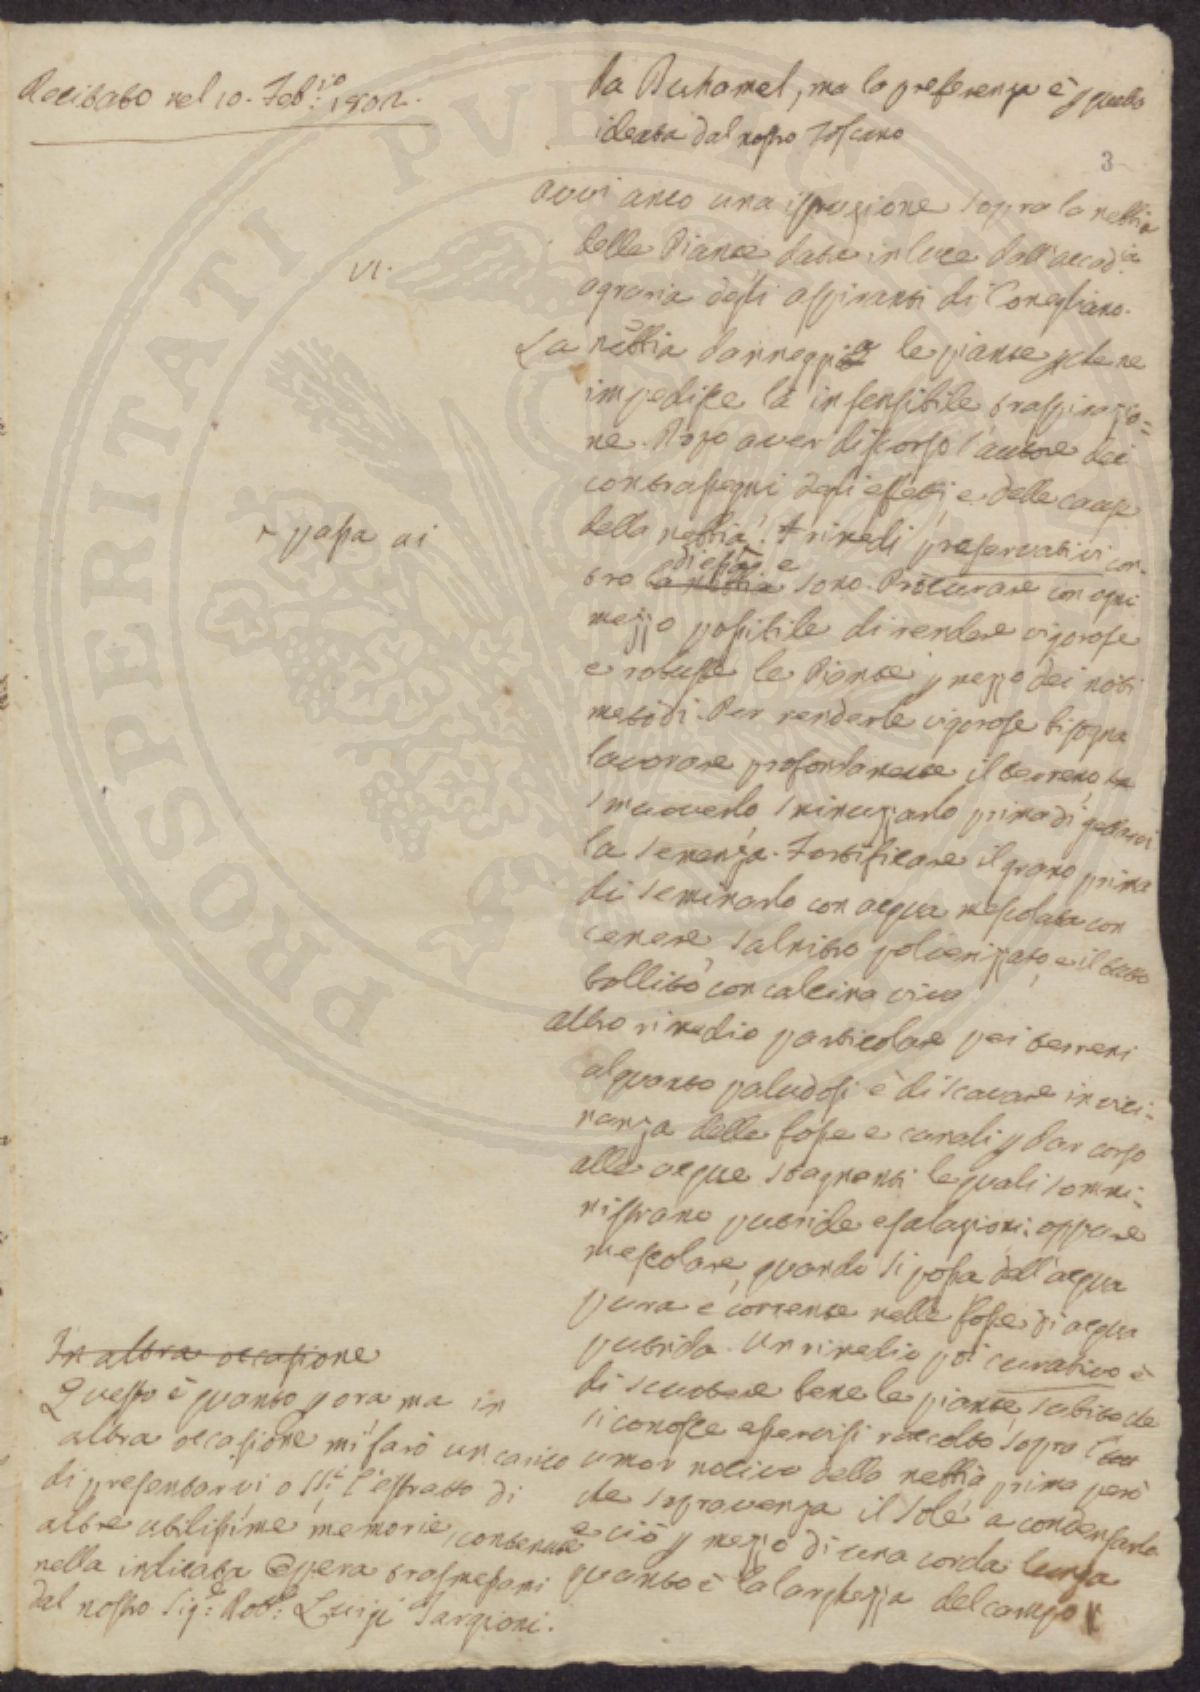 Recitato nel 10. Feb:io 1802.
da Duhamel, ma la preferenza è p quella
ideata dal nostro Toscano
3
VI.
Avvi anco una istruzione sopra la nebbia
delle Piante data in luce dall'accad:ia
agraria degli aspiranti di Conegliano.
La nebbia danneggia le piante pche ne
impedisce la insensibile traspirazio=
ne. Dopo aver discorso l'autore dei
contrassegni degli effetti, e delle cause
della nebbia. + rimedi preservativi con-
+ passa ai
tro la nebbia di essa e sono. Procurare con ogni
mezzo possibile di rendere vigorose
e robuste le Piante p mezzo dei noti
metodi. Per renderle vigorose bisogna
lavorare profondamente il terreno,
smuoverlo, sminuzzarlo prima di gettarvi
la semenza. Fortificare il grano prima
di seminarlo con acqua mescolata con
cenere, salnitro polverizzato, e il tutto
bollito con calcina viva
altro rimedio particolare pei terreni
alquanto paludosi è di scavare in vici-
nanza delle fosse e canali p dar corso
alle acque stagnanti le quali sommi-
nistrano putride esalazioni: oppure
mescolare, quando si possa dell'acqua
pura e corrente nelle fosse di acqua
putrida. Un rimedio poi curativo è
di scuotere bene le piante, subito che
si conosce esservisi raccolto sopra l'
umor nocivo della nebbia prima però
che sopravenga il sole a condensarlo
e ciò p mezzo di una corda lunga
quanto è la larghezza del campo
In altra occasione
Questo è quanto p ora ma in
altra occasione mi farò un carico
di presentarvi o SS:i l'estratto di
altre utilissime memorie, contenute
nella indicata Opera trasmessami
dal nostro Sig:e Dot:e Luigi Targioni.
PROSPERITATI PVBLICAE